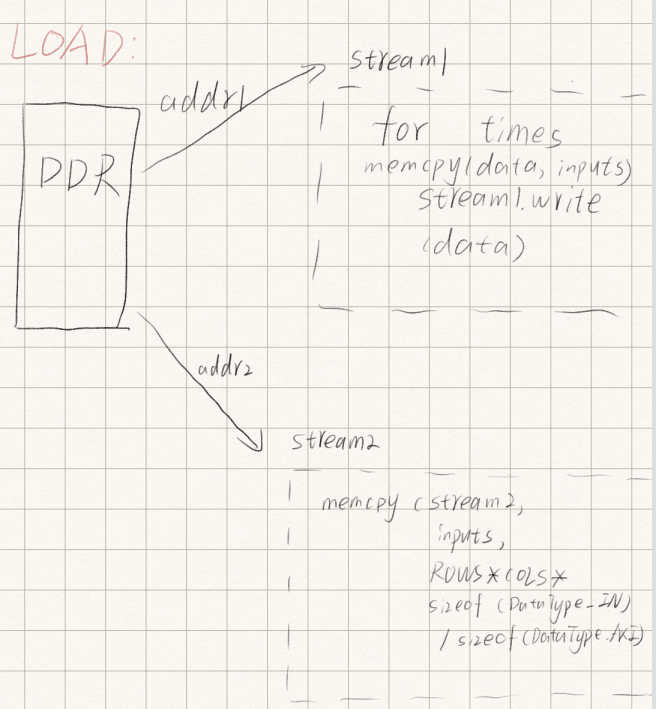 LOAD:
stream1
addr1
for times
DDR
memcpy(data, inputs)
stream1.write
(data)
addr2
stream2
memcpy (stream2,
inputs,
ROWS*COLS*
sizeof (DataType_IN)
/ sizeof(DataType_AXI)